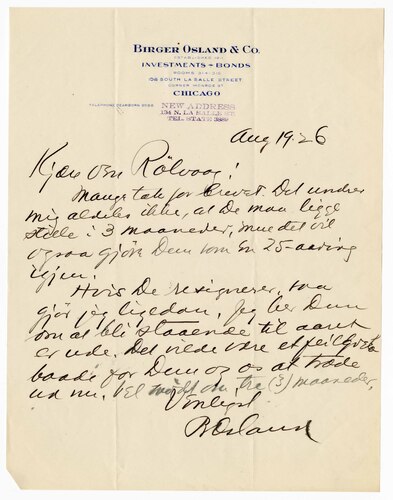 BIRGER OSLAND & CO.
ESTABLISHED 1911
INVESTMENTS - BONDS
ROOMS 314-316
108 SOUTH LA SALLE STREET
CORNER MONROE ST
CHICAGO
TELEPHONE DEARBORN
NEW ADDRESS
134 N. LA SALLE ST.
TEL. STATE
Aug 19-26
Kjære ven Rölvaag!
Mange tak for brevet. Det undres
mig aldeles ikke, at De maa ligge
stille i 3 maaneder, men det vil
ogsaa gjöre Dem som en 25-aaring
igjen.
Hvis De resignerer, saa
gjör jeg ligedan. Jeg ber Dem
om at bli staaende til aaret
er ude. Det vilde være et feil
baade for Dem og os at træde
ud nu. Vel mödt om tre (3) maaneder.
Venligst
B Osland